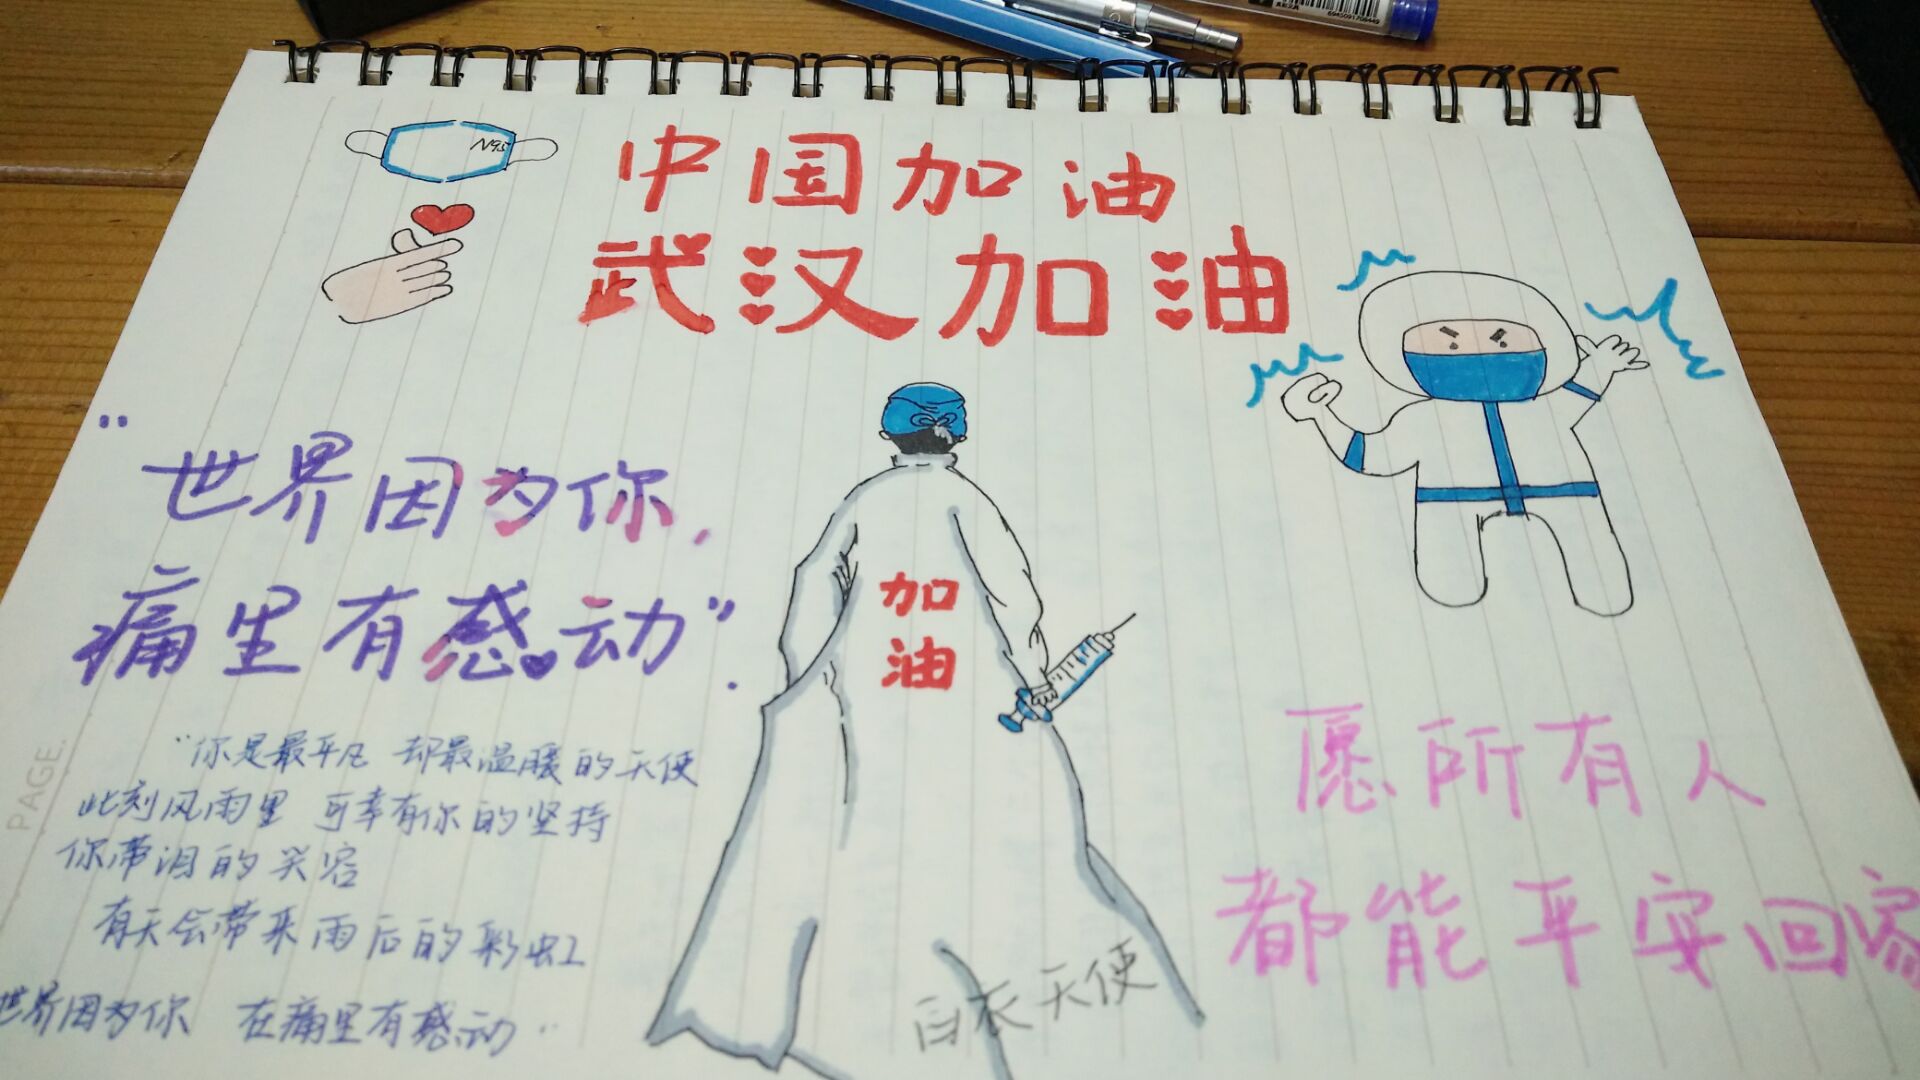 6945091706449
N95
中国加油
武汉加油
"世界因为你,
痛里有感动".
加
油
"你是最平凡 却最温暖的天使
此刻风雨里 可幸有你的坚持
你带泪的笑容
有天会带来雨后的彩虹
世界因为你 在痛里有感动"
白衣天使
愿所有人
都能平安回家
PAGE.